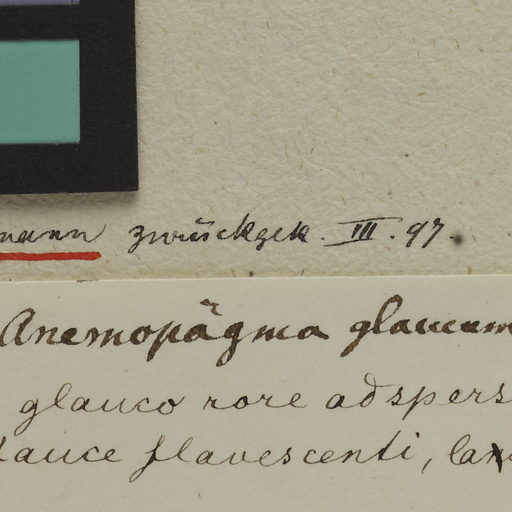 mann zurückgek. III. 97.
Anemopägma glaucum
glauco rore adspers
fauce flavescenti, lax